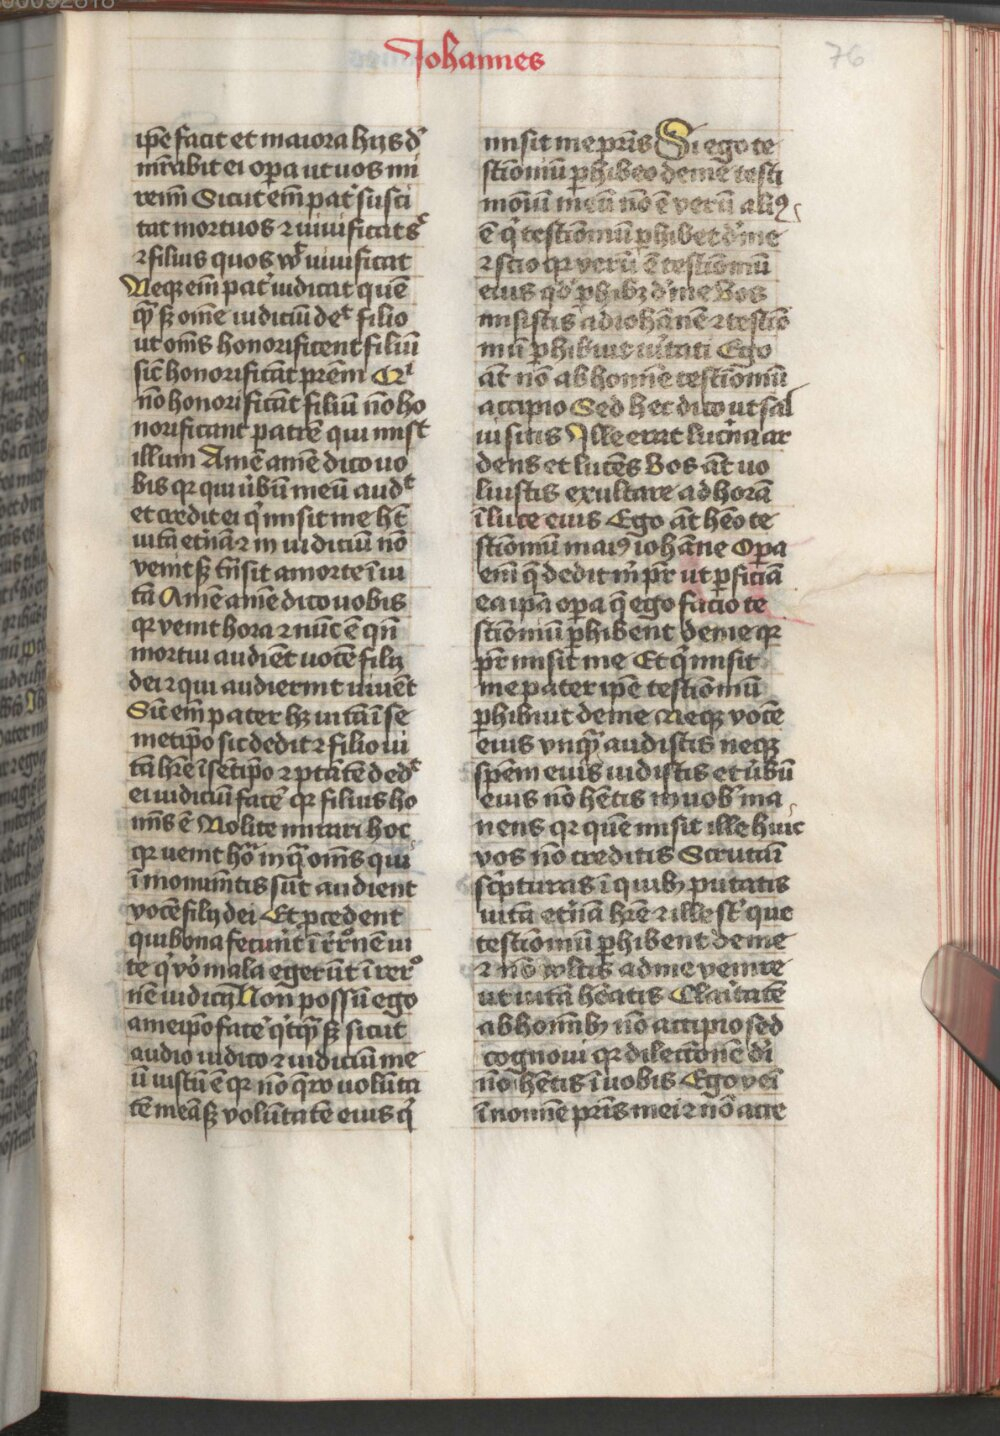 Johannes
76
ip̄e facit et maiora hijs d̕
mr̄abit ei oꝑa ut uos mi
remī Sicut em̄ pat̕ susci
tat mortuos ⁊ uiuificat s͛
⁊ filius quos wͭ uiuificat
Neqꝫ em̄ pat̕ iudicat quē
qᷓ sꝫ om̄e iudiciū deͭ filio
ut om̄s honorificent filiū
sic̄ honorificāt prēm Qͥ
nō honorificāt filiū nō ho
norificant patrē qui misͭ
illum Amē amē dico uo
bis qꝛ qui ūbū meū audͭ
et credit ei qͥ misit me hꝫ
uitā et̄nā ⁊ in iudiciū nō
venit sꝫ tn̄sit a morte ī ui
tā Amē amē dico uobis
qꝛ venit hora ⁊ nūc ē qn̄
mortui audiēt uocē filij
dei ⁊ qui audierint uiuēt
Sic̄ em̄ pater hꝫ uitā ī se
metip̄o sic dedit ⁊ filio ui
tā hr̄e ī sēꝉip̄o ⁊ ptātē dedͭ
ei iudiciū fac̄e qꝛ filius ho
mīs ē Nolite mirari hoc
qꝛ uenit hōᷓ in qᷓ om̄s qui
ī monum̄tis sūt audient
vocē filij dei Et ꝓcedent
qui bona fecūt ī r̄r̄onē ui
te qͥ vͦ mala egerūt ī rer̄ͦ
nē iudicij Non possū ego
a meip̄o fac̄e qͥcqᷓ sꝫ sicut
audio iudico ⁊ iudiciū me
ū iustū ē qꝛ nō qͣro uolūta
tē meā sꝫ volūtatē eius qͥ
misit me pr̄is Si ego te
stīoniū ꝑhibeo de me testi
moīū meū nō ē verū aliꝰ
ē qͥ testīoniū ꝑhibet d̕ me
⁊ scio qꝛ verū ē testīoniū
eius qd̕ ꝑhibꝫ d̕ me Vos
misistis ad iohānē ⁊ testīo
niū ꝑhibuit ūitati Ego
aūt nō ab hoīne testīoniū
accipio Sed hec dico ut sal
ui sitis Ille erat luc̄na ar
dens et lucēs Vos aūt uo
luistis exultare ad horā
ī luce eius Ego aūt hēo te
stīoniū maiꝰ iohāne Oꝑa
em̄ q̄ dedit m̕ pr̄ ut ꝑficiā
ea ip̄a oꝑa q̄ ego facio te
stīoniū ꝑhibent de me qꝛ
pr̄ misit me Et qͥ misit
me pater ip̄e testīoniū
ꝑhibuit de me Neqꝫ vocē
eius vnqᷓ audistis neqꝫ
spēm eius uidistis et ūbū
eius nō hētis in uob̕ ma
nens qꝛ quē misit ille huic
vos nō creditis Scrutaī
sc̄pturas ī quibꝫ putatis
uitā et̄nā hr̄e ⁊ ille sͭ que
testīoniū ꝑhibent de me
⁊ nō vltis ad me venire
ut uitā heātis Claritatē
ab hoībꝫ nō accipio sed
cognoui qꝛ dilectionē d̕i
nō hētis ī uobis Ego veī
ī nomīe pr̄is mei ⁊ nō acce